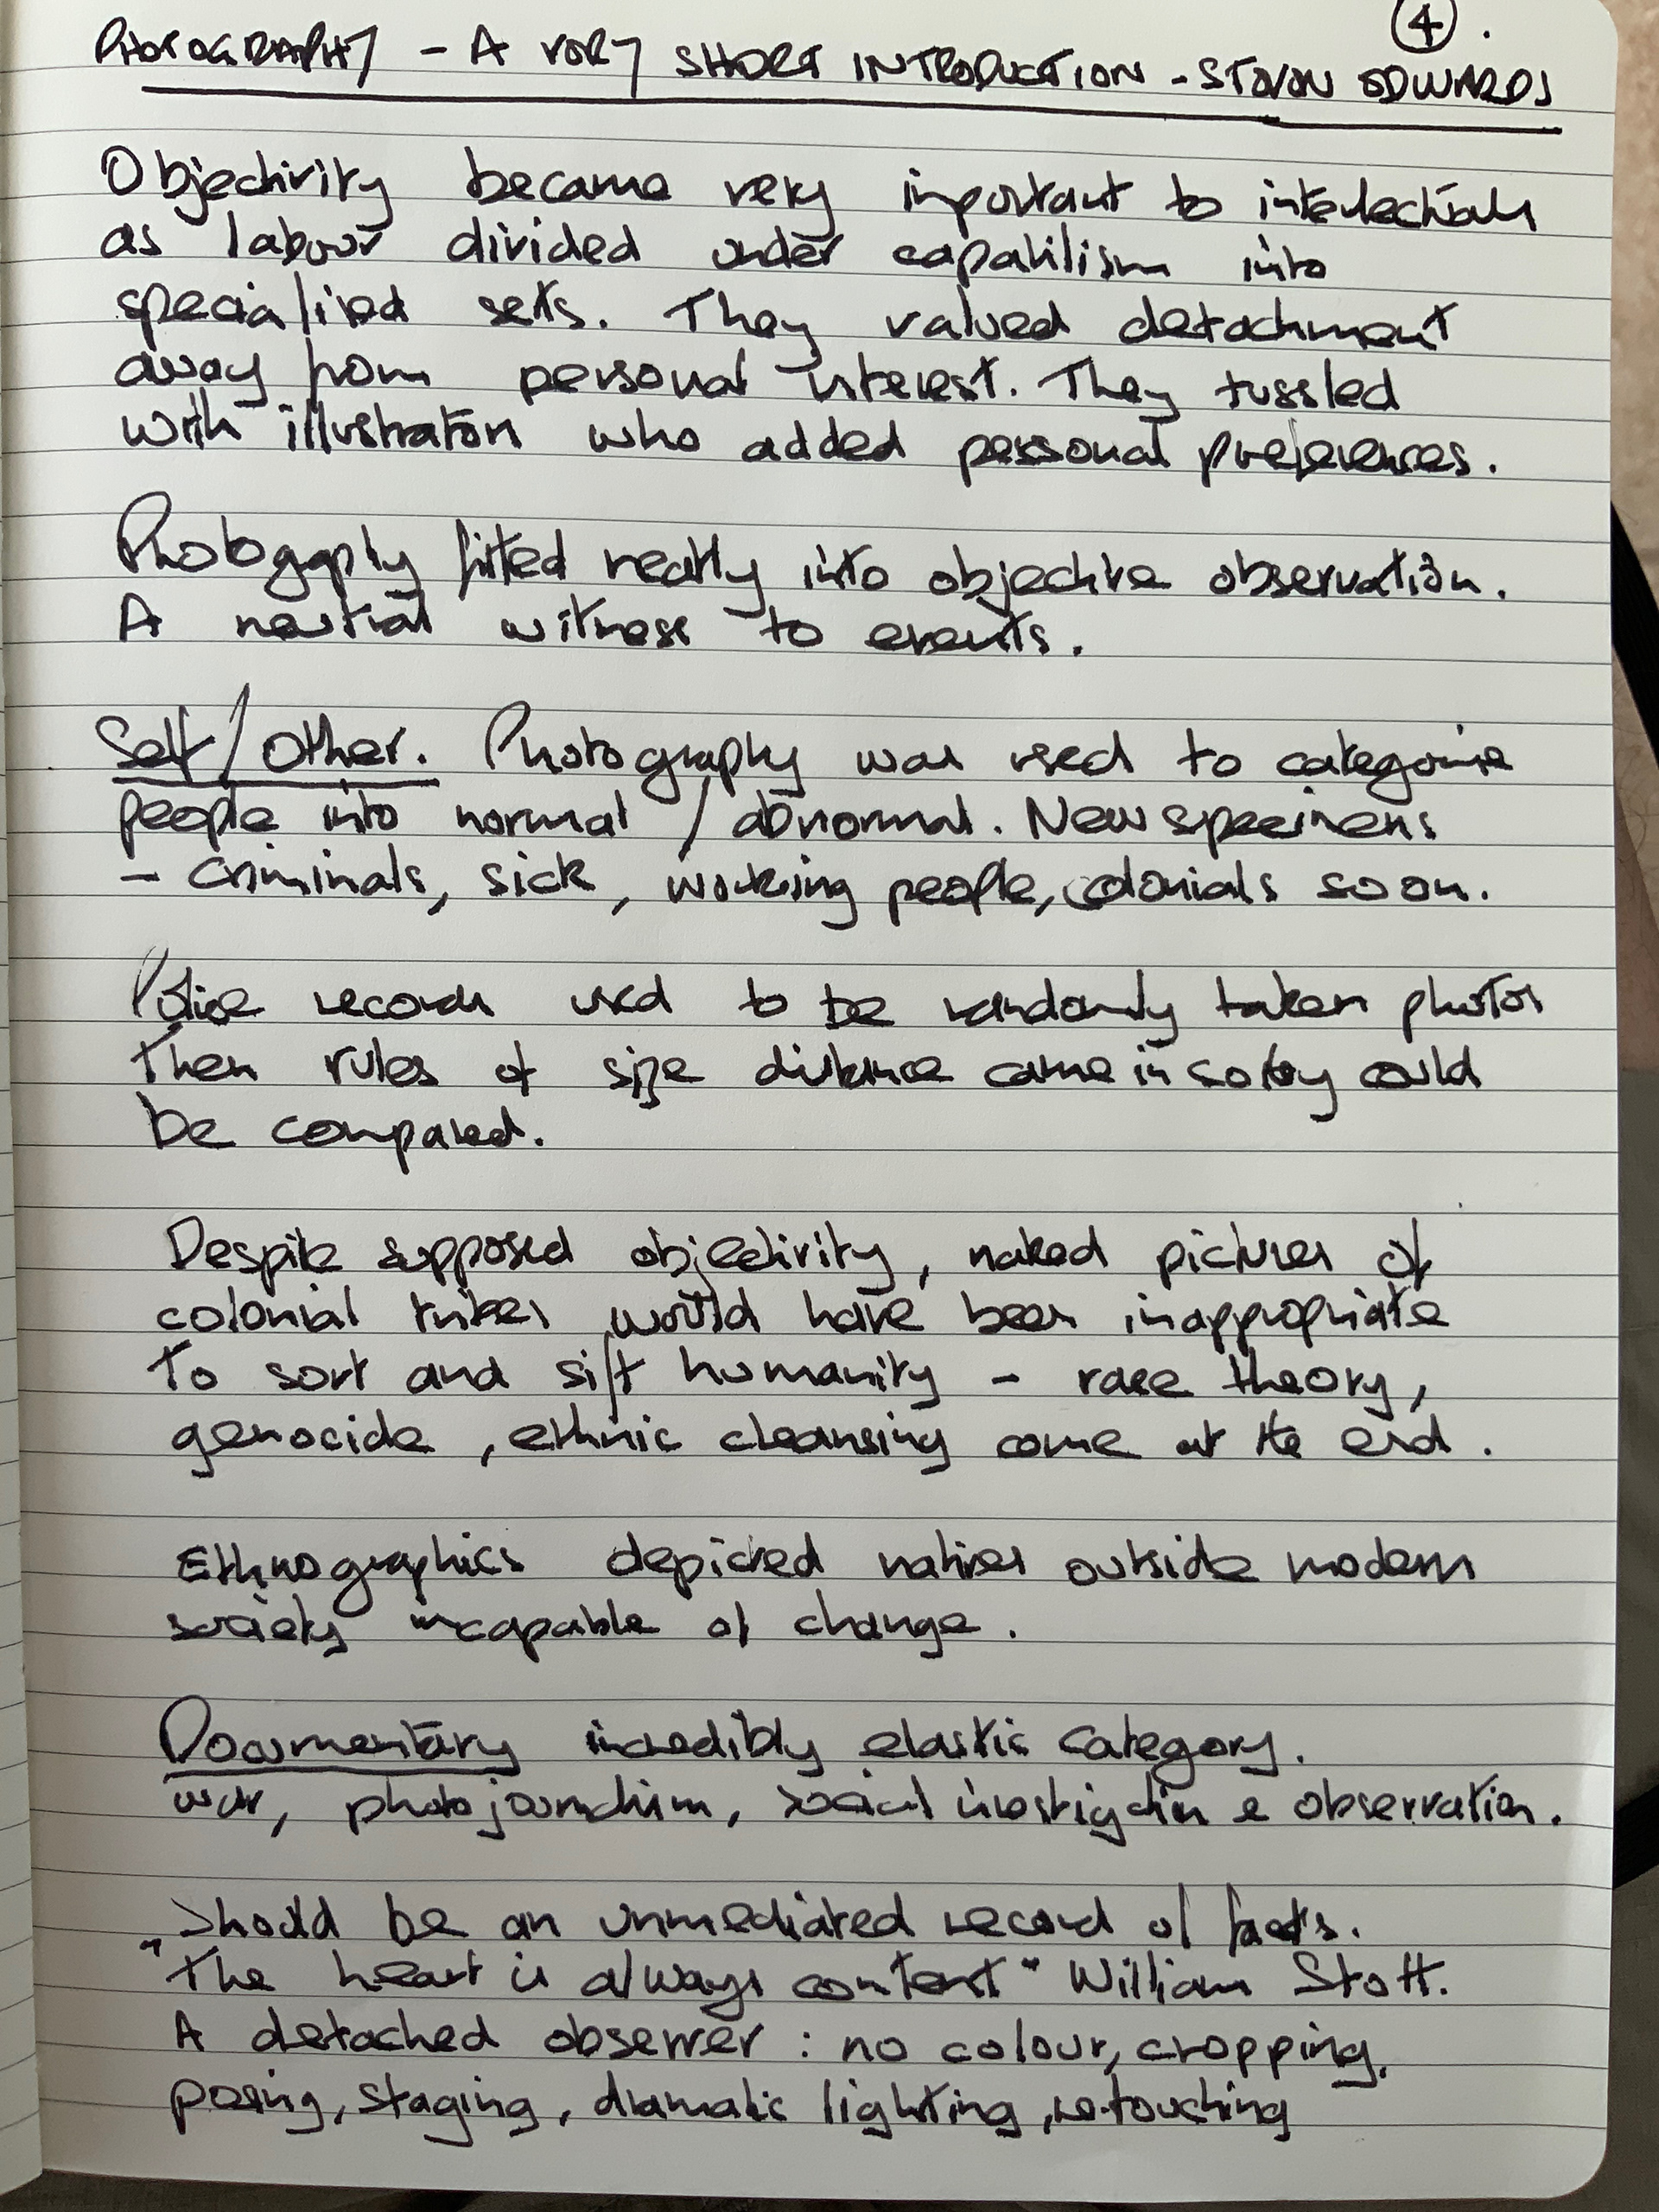 ④.
PHOTOGRAPHY - A VERY SHORT INTRODUCTION - STEVEN EDWARDS
Objectivity became very important to intelectuals
as labour divided under capatilism into
specialised sets. They valued detachment
away from personal interest. They tussled
with illustrators who added personal preferences.
Photography fitted neatly into objective observation.
A neutral witness to events.
Self/Other. Photography was used to categorise
people into normal / abnormal. New specimens
- criminals, sick, working people, colonials so on.
Police records used to be randomly taken photos
Then rules of size distance came in so they could
be compared.
Despite supposed objectivity, naked pictures of
colonial tribes would have been inappropriate
To sort and sift humanity - race theory,
genocide, ethnic cleansing come at the end.
Ethnographics depicted natives outside modern
society incapable of change.
Documentary incredibly elastic category.
war, photojournalism, social investigation & observation.
Should be an unmediated record of facts.
"The heart is always content" William Stott.
A detached observer : no colour, cropping,
posing, staging, dramatic lighting, re-touching